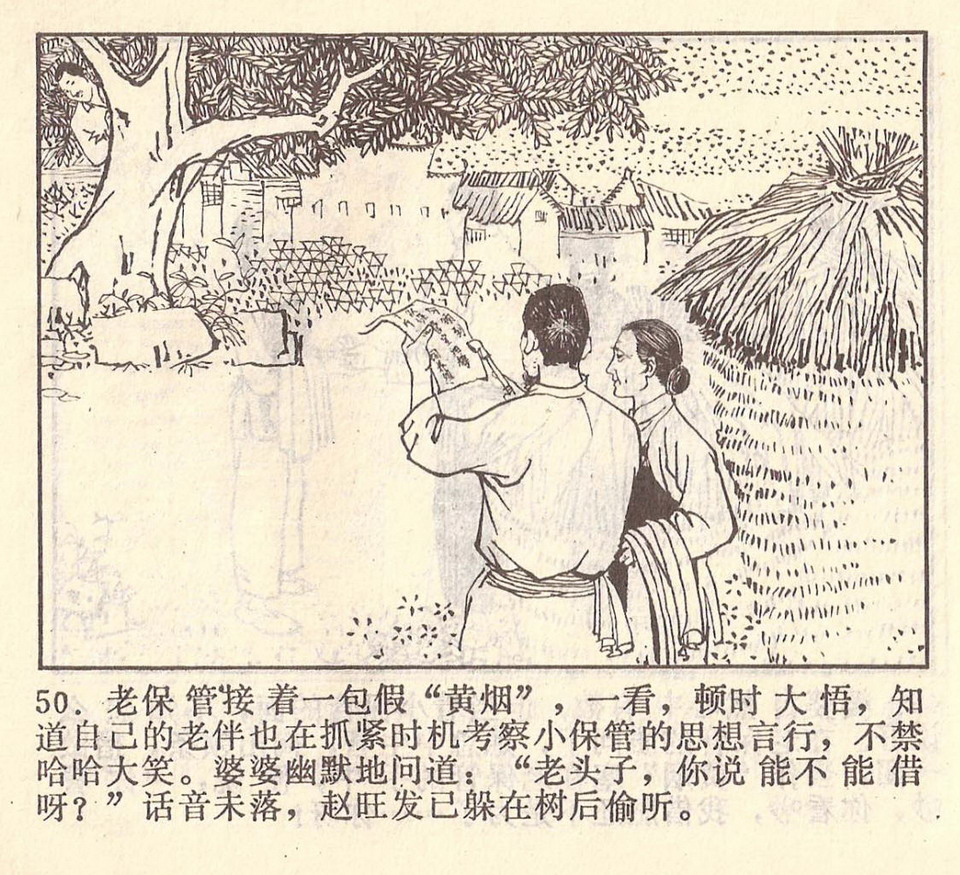 50. 老保管接着一包假“黄烟”，一看，顿时大悟，知
道自己的老伴也在抓紧时机考察小保管的思想言行，不禁
哈哈大笑。婆婆幽默地问道：“老头子，你说能不能借
呀？”话音未落，赵旺发已躲在树后偷听。